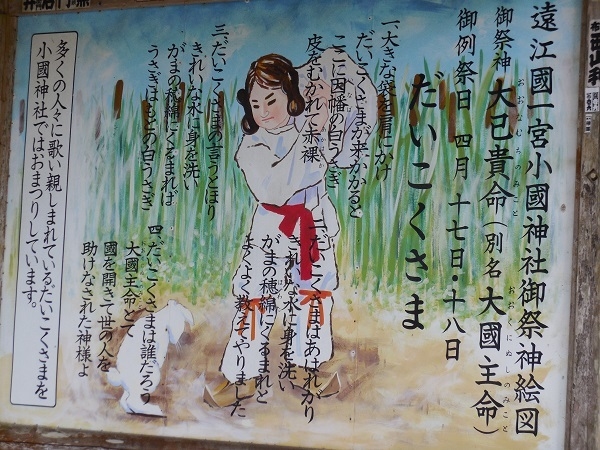 遠江國一宮小國神社御祭神絵図
御祭神 大己貴命(別名大國主命)
おおなむちのみこと
おおくにぬしのみこと
御例祭日 四月 十七日・十八日
だいこくさま
一、大きな袋を肩にかけ
だいこくさまが来かかると
ここに因幡の白うさぎ
皮をむかれて赤裸
二、だいこくさまはあはれがり
きれいな水に身を洗い
がまの穂綿にくるまれと
よくよく教えてやりました
三、だいこくさまの言うとほり
きれいな水に身を洗い
がまの穂綿にくるまれば
うさぎはもとの白うさぎ
四、だいこくさまは誰だろう
大國主命とて
國を開きて世の人を
助けなされた神様よ
多くの人々に歌い親しまれているだいこくさまを
小國神社ではおまつりしています。